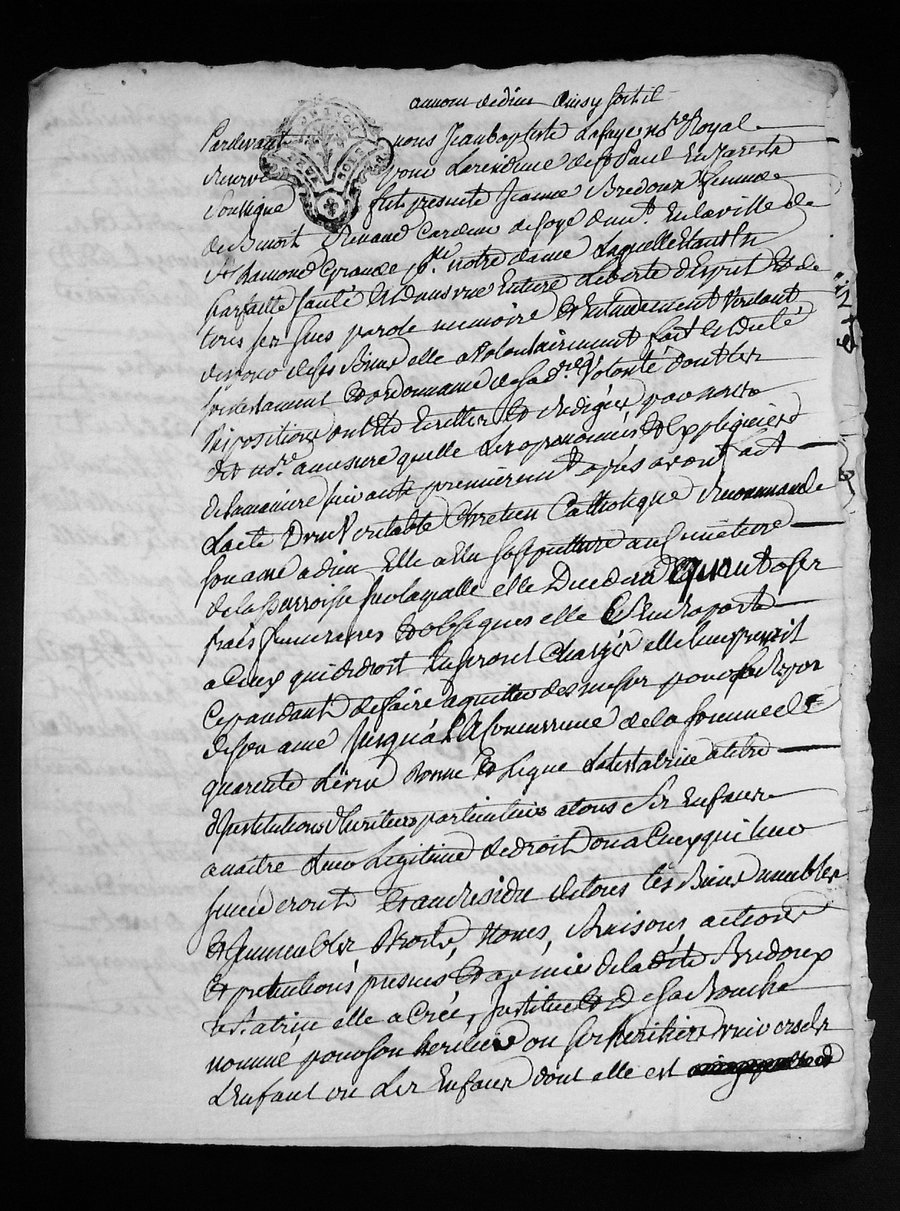 au nom de dieu ainsy soit il
Pardevant nous Jean baptiste Lafaye no.re Royal
Reservé pour la residence de St Paul En Jarest
Soussigné fut presente Jeanne Bredoux femme
de Benoit Renaud Cardeur de soye demt. En la ville de
St Chamond Grande p.sse notre dame Laquelle Etant En
parfaitte santé Et dans une Entiere Liberté d'Esprit Et de
tous ses sens parole memoire Et Entendement Voulant
disposer de ses Biens elle a Volontairement fait Et dicté
son testament Et ordonnance de sa d.re Volonté dont les
Dispositions ont Eté Ecrittes Et Redigées par nous
dit no.re a mesure quelle Les a prononcées Et Expliquées
de la maniere suivante premierement après avoir fait
Lacte D'un Veritable Chretien Catholique Recommandé
son ame a dieu Elle a Elu sa sepulture au Cimetiere
de la Parroisse sur laquelle elle Decedera Quant a ses
frais funeraires Et obseques elle s'En raporte
a Ceux qui de droit En seront Chargés elle leur prescrit
Cependant de faire aquitter des messes pour le Repos
de son ame Jusqu'a La Concurrence de la somme de
quarente Livres Donne Et Legue La testatrice a titre
d'Institutions d'heritiers particuliers a tous ses Enfans
a naitre Leur Legitime de droit ou a Ceux qui leur
succederont Et au Residu de tous les Biens meubles
Et Immeubles, Droits, Noms, Raisons, actions
Et pretentions presens Et a venir de ladite Bredoux
testatrice elle a Créé, Institué Et de sa Bouche
nommé pour son heritier ou ses heritiers universels
L'Enfant ou Les Enfans dont elle est